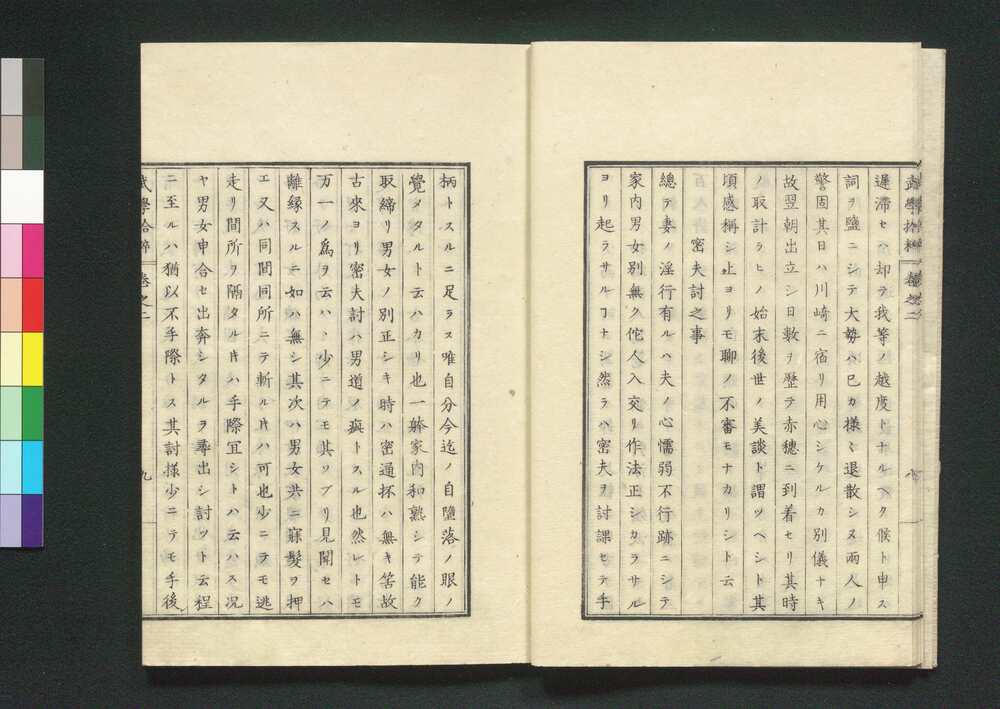 遅滞セハ却ラ我等ノ越度トナルヘク候ト申ス
詞ヲ盬ニシテ大勢ハ已カ様〻退散シヌ兩人ノ
警固其日ハ川崎ニ宿リ用心シケルカ別儀ナキ
故翌朝出立シ日數ヲ歴テ赤穗ニ到着セリ其時
ノ取計ラヒノ始末後世ノ美談ト謂ツヘシト其
頃感稱シ止ヨリモ聊ノ不審モナカリシト云
密夫討之事
總テ妻ノ淫行有ルハ夫ノ心懦弱不行跡ニシテ
家内男女別無ク佗人入交リ作法正シカラサル
ヨリ起ラサルヿナシ然ラハ密夫ヲ討課セテ手
柄トスルニ足ラス唯自分今迄ノ自墮落ノ眼ノ
覺メタルト云ハカリ也一躰家内和熟シテ能ク
取締リ男女ノ別正シキ時ハ密通抔ハ無キ筈故
古來ヨリ密夫討ハ男道ノ瘢トスル也然レトモ
万一ノ爲ヲ云ハヽ少ニテモ其ソブリ見聞セハ
離緣スルニ如ハ無シ其次ハ男女共ニ寐髮ヲ押
エ又ハ同間同所ニテ斬ルヰハ可也少ニラモ逃
走リ間所ヲ隔タルヰハ手際冝シトハ云ハス况
ヤ男女申合セ出奔シタルヲ尋出シ討ツト云程
ニ至ルハ猶以不手際トス其討様少ニラモ手後
武學拾粹 卷之二 九